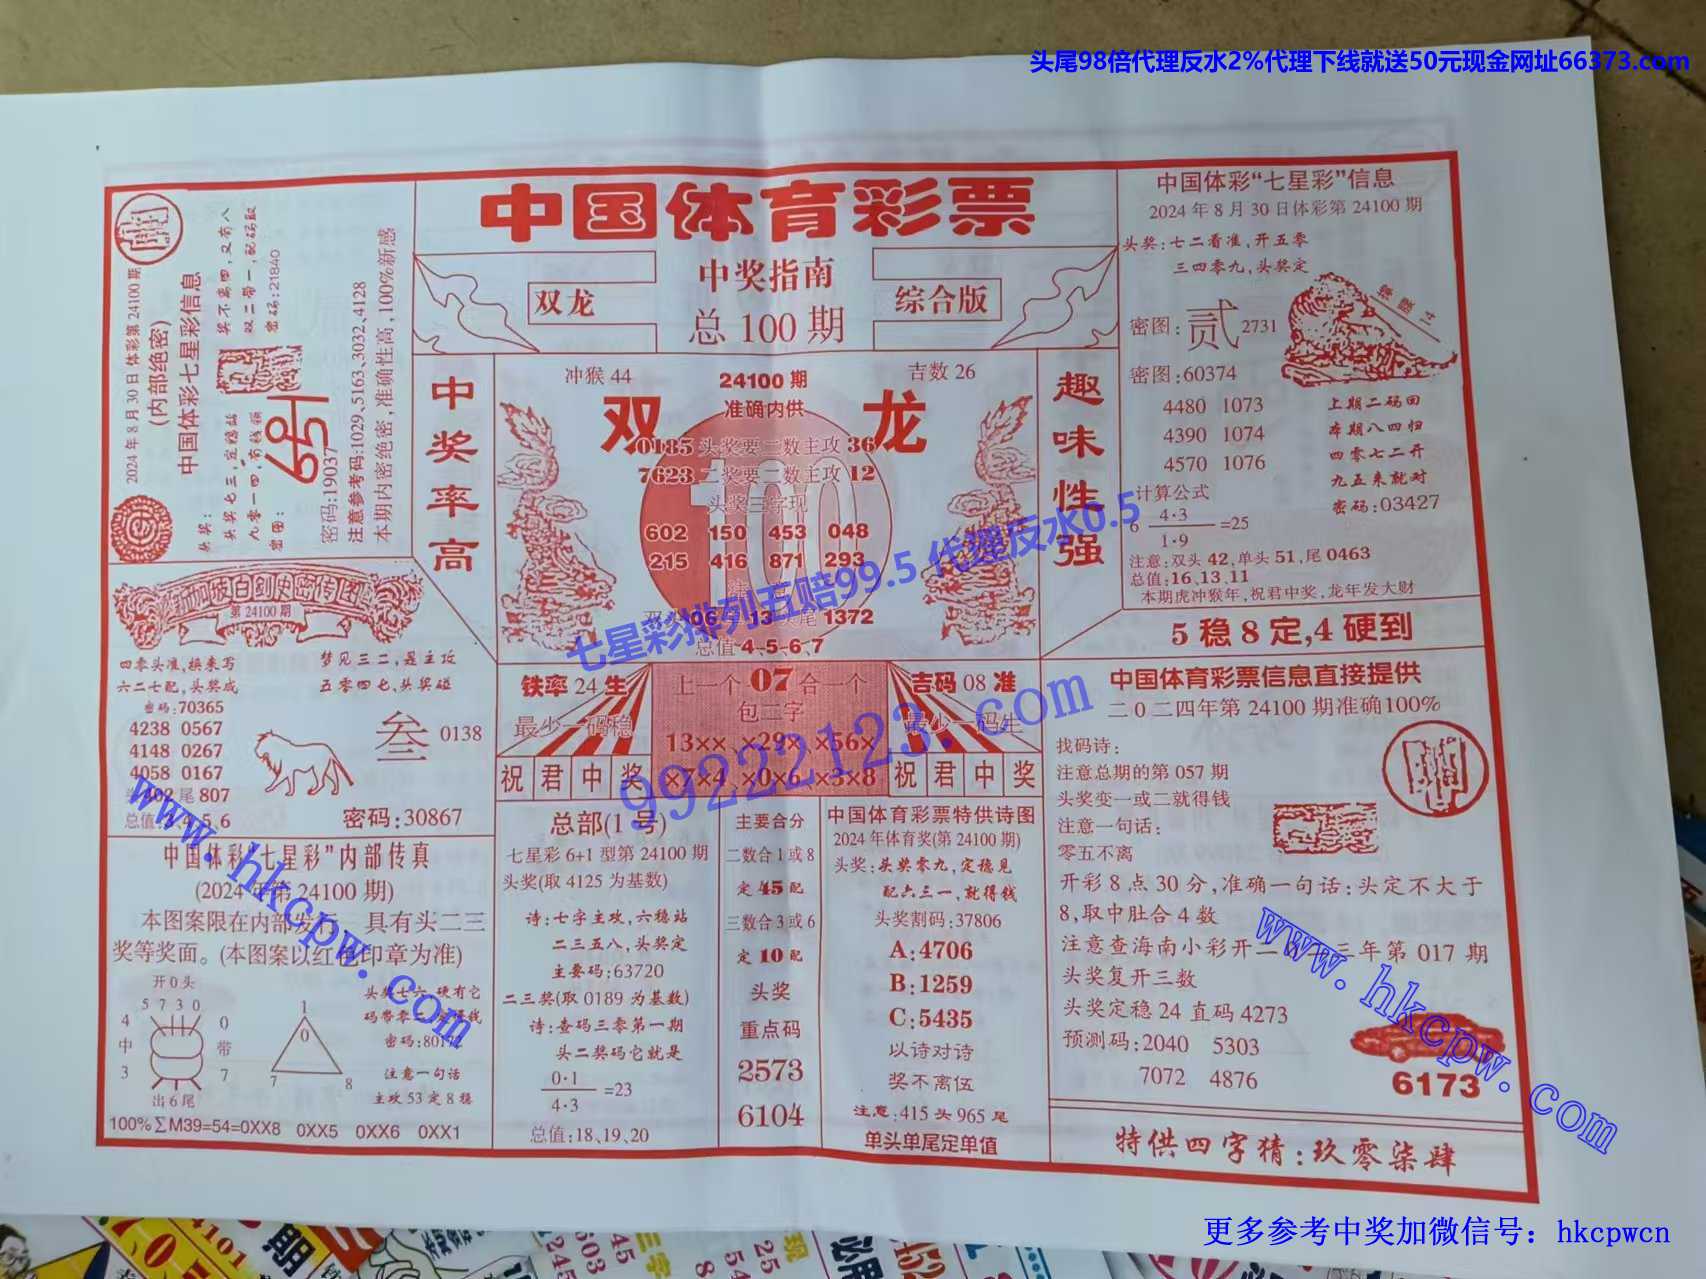 头尾98倍代理反水2%代理下线就送50元现金网址66373.com
中国体育彩票
中奖指南
双龙
综合版
总100期
2024年8月30日体彩第24100期
(内部绝密)
中国体彩七星彩信息
头奖七三,定稳站
九零一四,有钱领
奖不离四,又有八
双二带一,配码取
密码:21840
密图:
密码:19037
注意参考码:1029、5163、3032、4128
本期内密绝密,准确性高,100%新感
中国体彩“七星彩”信息
2024年8月30日体彩第24100期
头奖:七二看准,开五零
三四零九,头奖定
密图:贰2731
密图:60374
4480 1073
4390 1074
4570 1076
上期二码回
本期八四归
四零七二开
九五来就对
密码:03427
计算公式
6 4·3
1·9
=25
注意:双头42,单头51,尾0463
总值:16、13、11
本期虎冲猴年,祝君中奖,龙年发大财
5稳8定,4硬到
中奖率高
趣味性强
冲猴44
24100期
吉数26
准确内供
双龙
0185头奖要二数主攻36
7623二奖要二数主攻12
头奖三字现
100
602 150 453 048
215 416 871 293
06 13 头尾1372
总值4、5、6、7
铁率24生
最少一码稳
上一个07合一个
包二字
吉码08准
最少一码生
13×× ×29× ×56×
×7×4 ×0×6 ×3×8
祝君中奖
祝君中奖
七星彩排列五赔99.5 代理反水0.5
99222123.com
第24100期
四零头准,换来写
六二七配,头奖成
密码:70365
梦见三二,是主攻
五零四七,头奖碰
4238 0567
4148 0267
4058 0167
叁0138
尾807
密码:30867
www.hkcpw.com
中国体彩“七星彩”内部传真
(2024年第24100期)
本图案限在内部发行 具有头二三
奖等奖面。(本图案以红色印章为准)
开0头
5 7 3 0
4中3
0带7
出6尾
1
0
7 8
注意一句话
主攻53定8稳
100%∑M39=54=0XX8 0XX5 0XX6 0XX1
总部(1号)
七星彩6+1型第24100期
头奖(取4125为基数)
诗:七字主攻,六稳站
二三五八,头奖定
主要码:63720
二三奖(取0189为基数)
诗:查码三零第一期
头二奖码它就是
0·1
4·3
=23
总值:18、19、20
主要合分
二数合1或8
定45配
三数合3或6
定10配
头奖
重点码
2573
6104
中国体育彩票特供诗图
2024年体育奖(第24100期)
头奖:头奖零九,定稳见
配六三一,就得钱
头奖割码:37806
A:4706
B:1259
C:5435
以诗对诗
奖不离伍
注意:415头965尾
单头单尾定单值
中国体育彩票信息直接提供
二0二四年第24100期准确100%
找码诗:
注意总期的第057期
头奖变一或二就得钱
注意一句话:
零五不离
开彩8点30分,准确一句话:头定不大于
8,取中肚合4数
头奖复开三数
头奖定稳24直码4273
预测码:2040 5303
7072 4876
6173
特供四字猜:玖零柒肆
www.hkcpw.com
更多参考中奖加微信号:hkcpwcn